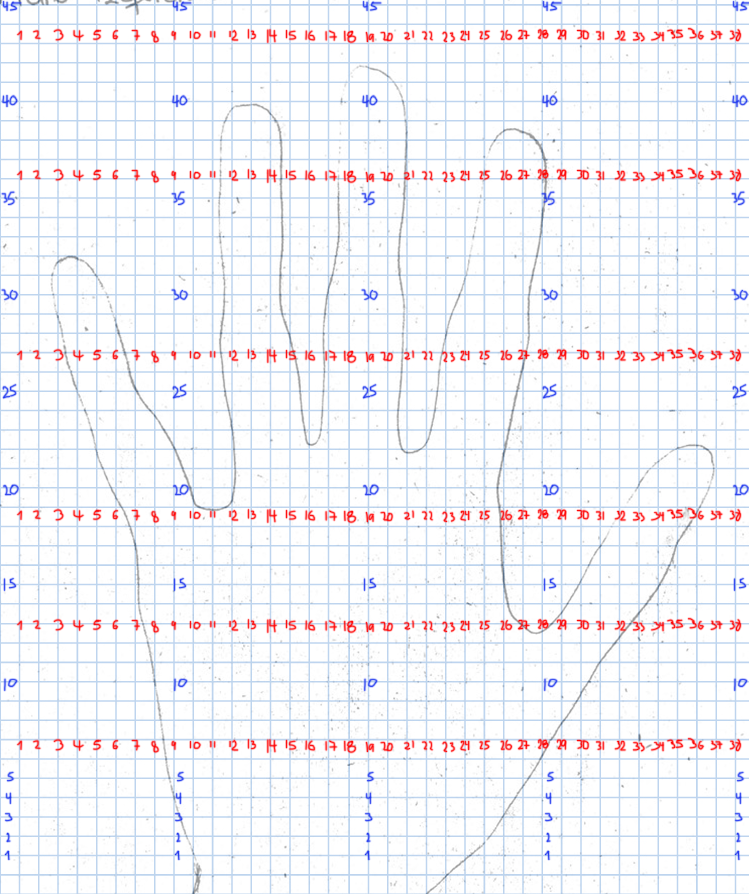 45 45 45 45 45
1 2 3 4 5 6 7 8 9 10 11 12 13 14 15 16 17 18 19 20 21 22 23 24 25 26 27 28 29 30 31 32 33 34 35 36 37 38
40 40 40 40 40
1 2 3 4 5 6 7 8 9 10 11 12 13 14 15 16 17 18 19 20 21 22 23 24 25 26 27 28 29 30 31 32 33 34 35 36 37 38
35 35 35 35 35
30 30 30 30 30
1 2 3 4 5 6 7 8 9 10 11 12 13 14 15 16 17 18 19 20 21 22 23 24 25 26 27 28 29 30 31 32 33 34 35 36 37 38
25 25 25 25 25
20 20 20 20 20
1 2 3 4 5 6 7 8 9 10 11 12 13 14 15 16 17 18 19 20 21 22 23 24 25 26 27 28 29 30 31 32 33 34 35 36 37 38
15 15 15 15 15
1 2 3 4 5 6 7 8 9 10 11 12 13 14 15 16 17 18 19 20 21 22 23 24 25 26 27 28 29 30 31 32 33 34 35 36 37 38
10 10 10 10 10
1 2 3 4 5 6 7 8 9 10 11 12 13 14 15 16 17 18 19 20 21 22 23 24 25 26 27 28 29 30 31 32 33 34 35 36 37 38
5 5 5 5 5
4 4 4 4 4
3 3 3 3 3
2 2 2 2 2
1 1 1 1 1